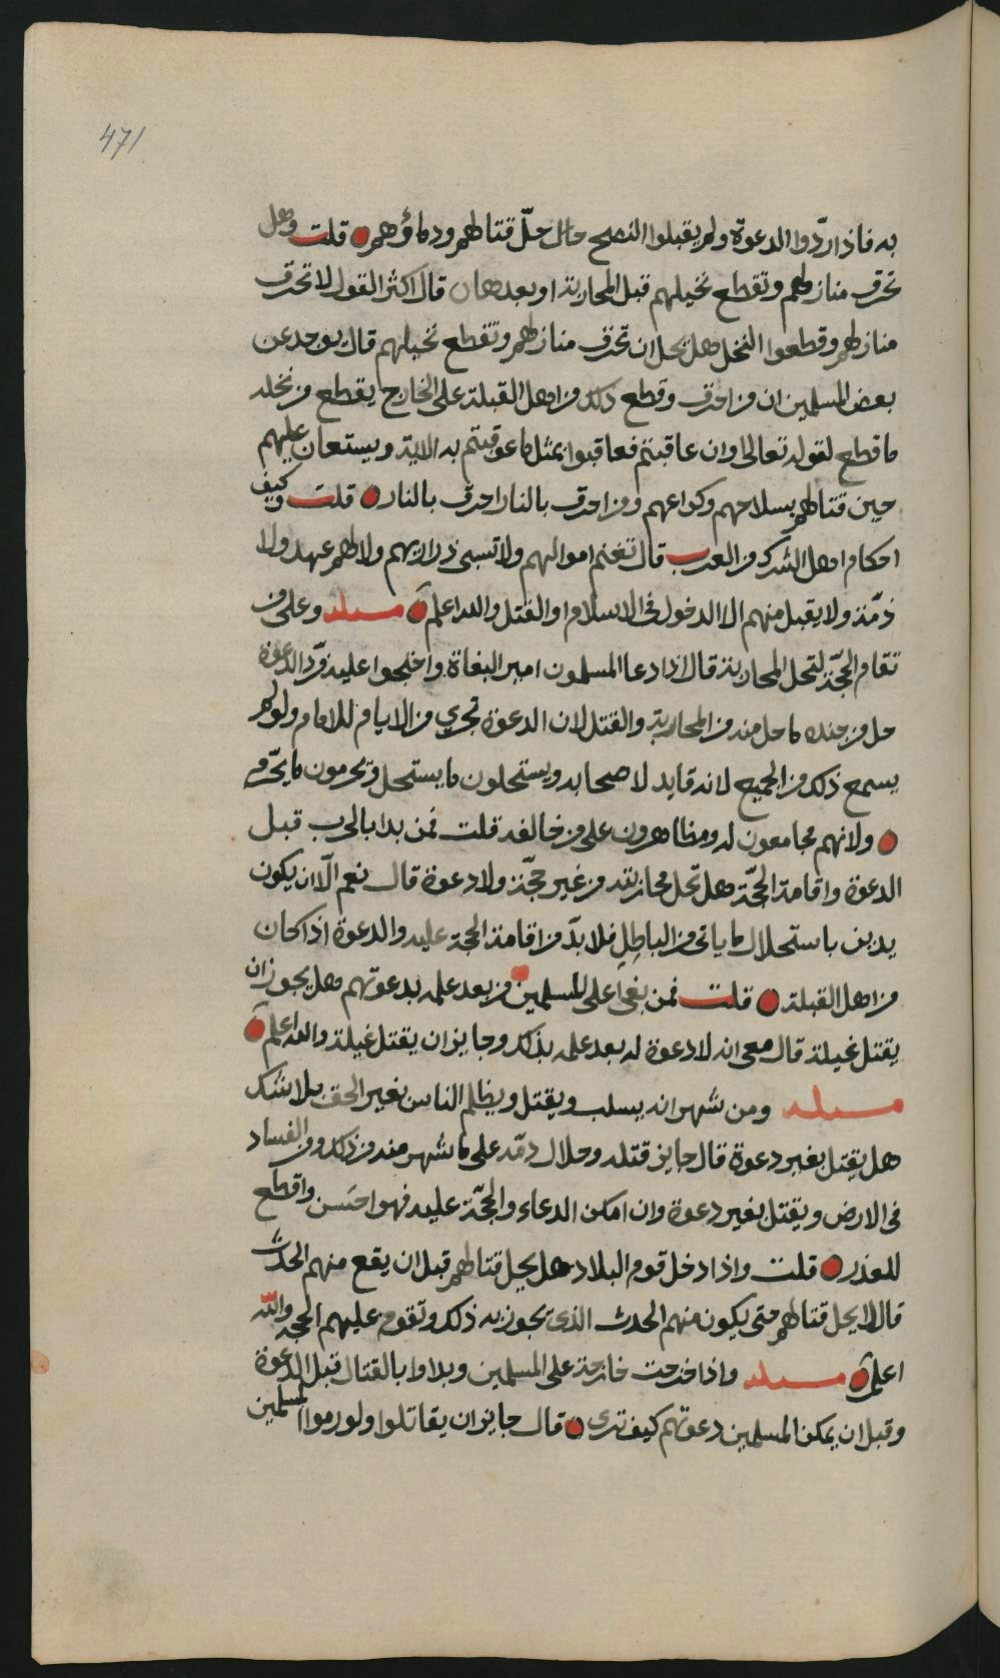 471
به فاذا ردّوا الدعوة ولم يقبلوا النصح حال حلّ قتالهم ودماؤهم قلت وهل
تحرق منازلهم وتقطع نخيلهم قبل المحاربة او بعدها ن قال اكثر القول لا تحرق
منازلهم وقطعوا النخل هل يحل ان تحرق منازلهم وتقطع نخيلهم قال يوجد عن
بعض المسلمين ان من احرق وقطع ذلك من اهل القبلة على الخارج يقطع من نخله
ما قطع لقوله تعالى وان عاقبتم فعاقبوا بمثل ما عوقبتم به الاية ويستعان عليهم
حين قتالهم بسلاحهم وكراعهم ومن احرق بالنار احرق بالنار قلت وكيف
احكام اهل الشرك من العرب قال تغنم اموالهم ولا تسبى ذراريهم ولا لهم عهد ولا
ذمّة ولا يقبل منهم الا الدخول فى الاسلام او القتل والله اعلم مسئلة وعلى من
تقام الحجّة لتحل المحاربة قال اذا دعا المسلمون امير البغاة واحتجوا عليه فردّ الدعوة
حل من جنده ما حل منه من المحاربة والقتل لان الدعوة تجري من الايام للامام ولو لم
يسمع ذلك من الجميع لانه قايد لاصحابه ويستحلون ما يستحل ويحرمون ما يحرّم
ولانهم مجامعون له ومظاهرون على من خالفه قلت فمن بدا بالحرب قبل
الدعوة واقامة الحجّة هل تحل محاربته من غير حجّة ولا دعوة قال نعم الّا ان يكون
يدين باستحلال ما ياتى من الباطل فلا بدّ من اقامة الحجة عليه والدعوة اذا كان
من اهل القبلة قلت فمن بغى على المسلمين من بعد علمه بدعوتهم هل يجوز ان
يقتل غيلة قال معى انه لا دعوة له بعد علمه بذلك وجايز ان يقتل غيلة والله اعلم
مسئلة ومن شهر انه يسلب ويقتل ويظلم الناس بغير الحق بلا شك
هل يقتل بغير دعوة قال جايز قتله وحلال دمّه على ما شهر منه من ذلك ومن الفساد
فى الارض ويقتل بغير دعوة وان امكن الدعاء والحجّة عليه فهو احسن واقطع
للعذر قلت واذا دخل قوم البلاد هل يحل قتالهم قبل ان يقع منهم الحدث
قال لا يحل قتالهم حتى يكون منهم الحدث الذى يجوز به ذلك وتقوم عليهم الحجة والله
اعلم مسئلة واذا خرجت خارجة على المسلمين وبداوا بالقتال قبل الدعوة
وقبل ان يمكن المسلمين دعوتهم كيف ترى قال جايز ان يقاتلوا ولو رموا المسلمين